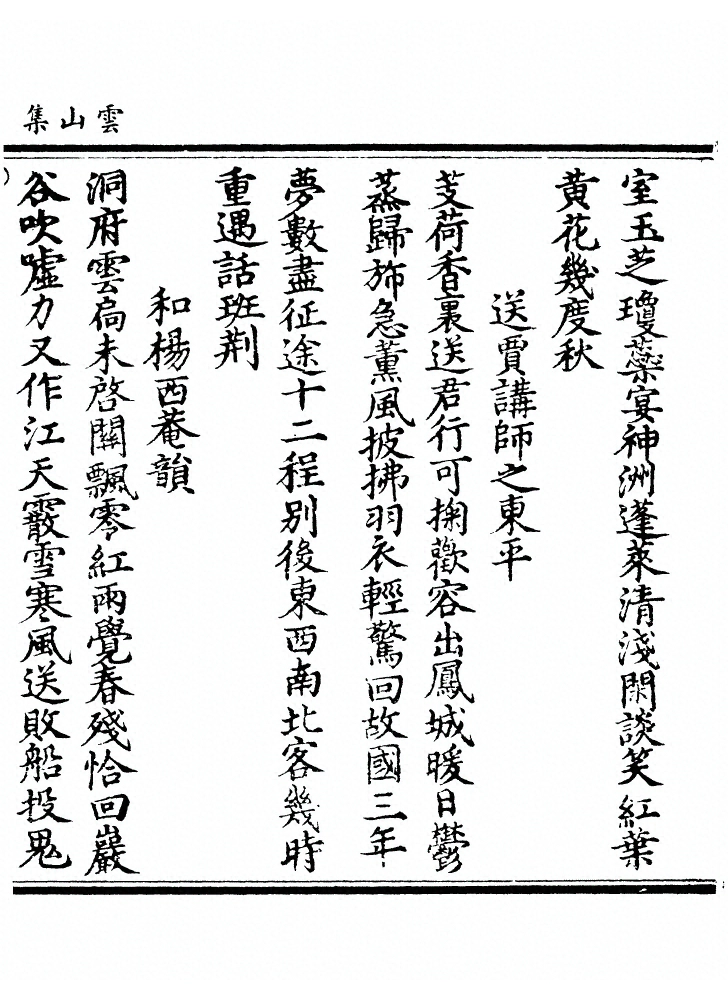 雲山集
室玉芝瓊蘂宴神洲蓬萊清淺閑談笑紅葉
黃花幾度秋
送賈講師之東平
芰荷香裏送君行可掬歡容出鳳城暖日鬱
蒸歸斾急薰風披拂羽衣輕驚回故國三年
夢數盡征途十二程別後東西南北客幾時
重遇話班荆
和楊西菴韻
洞府雲扃未啓關飄零紅雨覺春殘恰回巖
谷吹噓力又作江天霰雪寒風送敗船投鬼